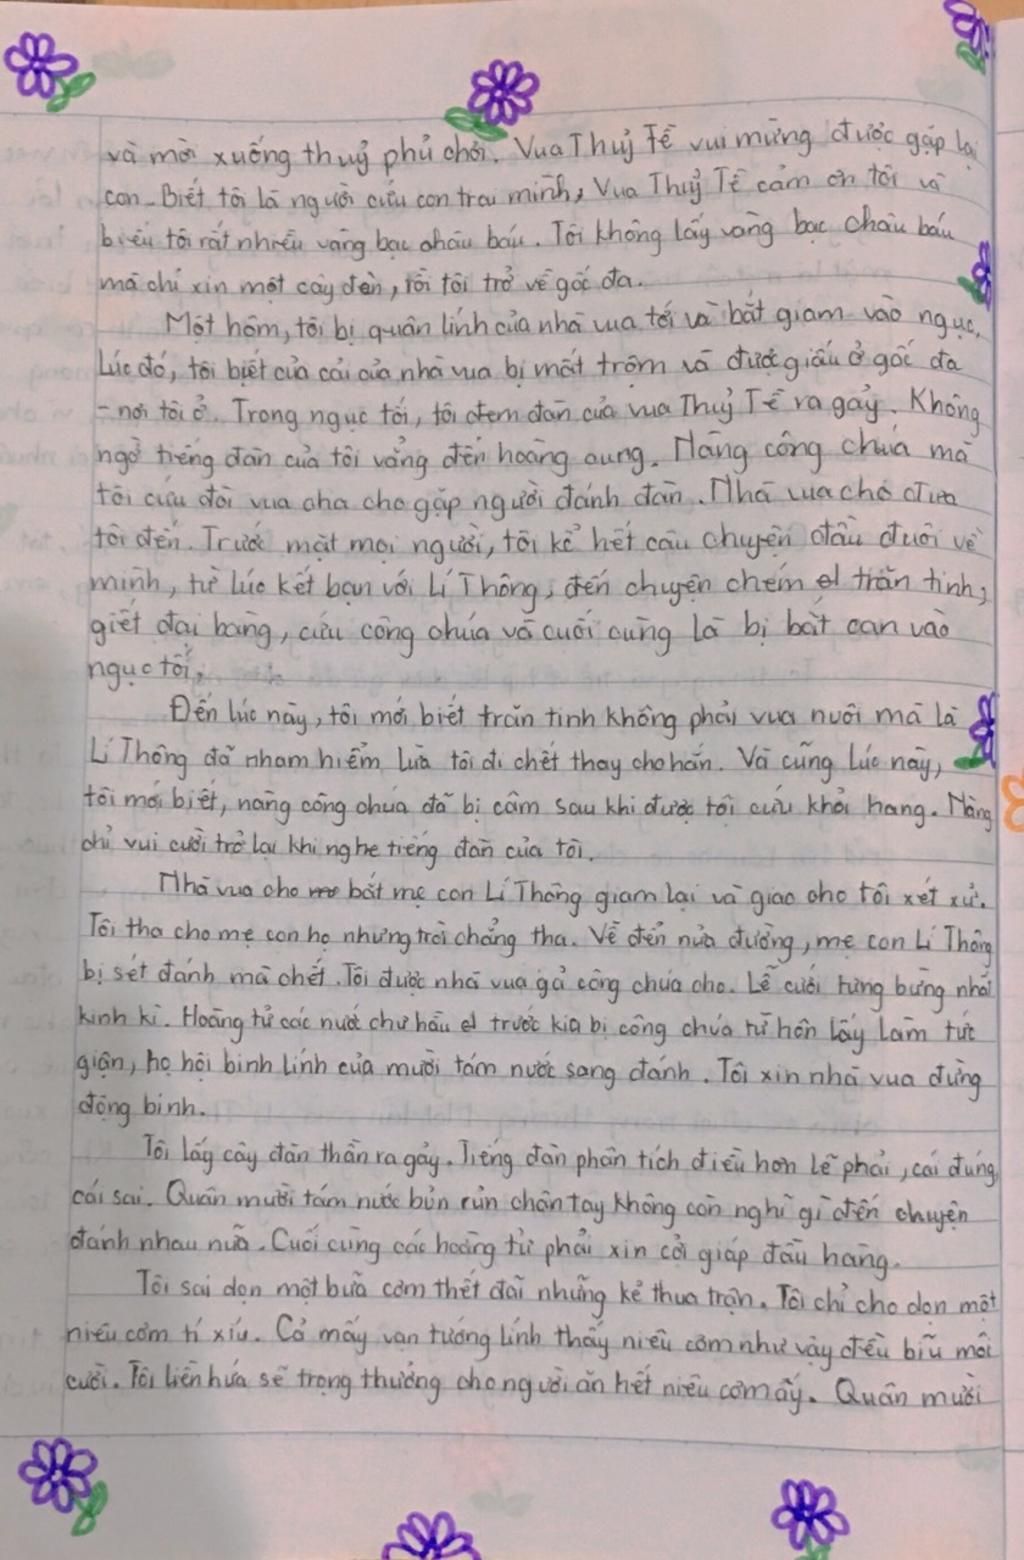 và mời xuống thuỷ phủ chơi. Vua Thuỷ Tề vui mừng được gặp lại
con. Biết tôi là người cứu con trai mình, Vua Thuỷ Tề cảm ơn tôi và
biếu tôi rất nhiều vàng bạc châu báu. Tôi không lấy vàng bạc châu báu
mà chỉ xin một cây đàn, rồi tôi trở về gốc đa.
Một hôm, tôi bị quân lính của nhà vua tới và bắt giam vào ngục.
Lúc đó, tôi biết của cải của nhà vua bị mất trộm và được giấu ở gốc đa
- nơi tôi ở. Trong ngục tối, tôi đem đàn của vua Thuỷ Tề ra gảy. Không
ngờ tiếng đàn của tôi vẳng đến hoàng cung. Nàng công chúa mà
tôi cứu đòi vua cha cho gặp người đánh đàn. Nhà vua cho đưa
tôi đến. Trước mặt mọi người, tôi kể hết câu chuyện đầu đuôi về
mình, từ lúc kết bạn với Lí Thông, đến chuyện chém trăn tinh,
giết đại bàng, cứu công chúa và cuối cùng là bị bắt oan vào
ngục tối.
Đến lúc này, tôi mới biết trăn tinh không phải vua nuôi mà là
Lí Thông đã nham hiểm lừa tôi đi chết thay cho hắn. Và cũng lúc này,
tôi mới biết, nàng công chúa đã bị câm sau khi được tôi cứu khỏi hang. Nàng
chỉ vui cười trở lại khi nghe tiếng đàn của tôi.
Nhà vua cho bắt mẹ con Lí Thông giam lại và giao cho tôi xét xử.
Tôi tha cho mẹ con họ nhưng trời chẳng tha. Về đến nửa đường, mẹ con Lí Thông
bị sét đánh mà chết. Tôi được nhà vua gả công chúa cho. Lễ cưới tưng bừng nhất
kinh kì. Hoàng tử các nước chư hầu trước kia bị công chúa từ hôn lấy làm tức
giận, họ hội binh lính của mười tám nước sang đánh. Tôi xin nhà vua đừng
động binh.
Tôi lấy cây đàn thần ra gảy. Tiếng đàn phân tích điều hơn lẽ phải, cái đúng
cái sai. Quân mười tám nước bủn rủn chân tay không còn nghĩ gì đến chuyện
đánh nhau nữa. Cuối cùng các hoàng tử phải xin cởi giáp đầu hàng.
Tôi sai dọn một bữa cơm thết đãi những kẻ thua trận. Tôi chỉ cho dọn một
niêu cơm tí xíu. Cả mấy vạn tướng lính thấy niêu cơm như vậy đều bĩu môi
cười. Tôi liền hứa sẽ trọng thưởng cho người ăn hết niêu cơm ấy. Quân mười